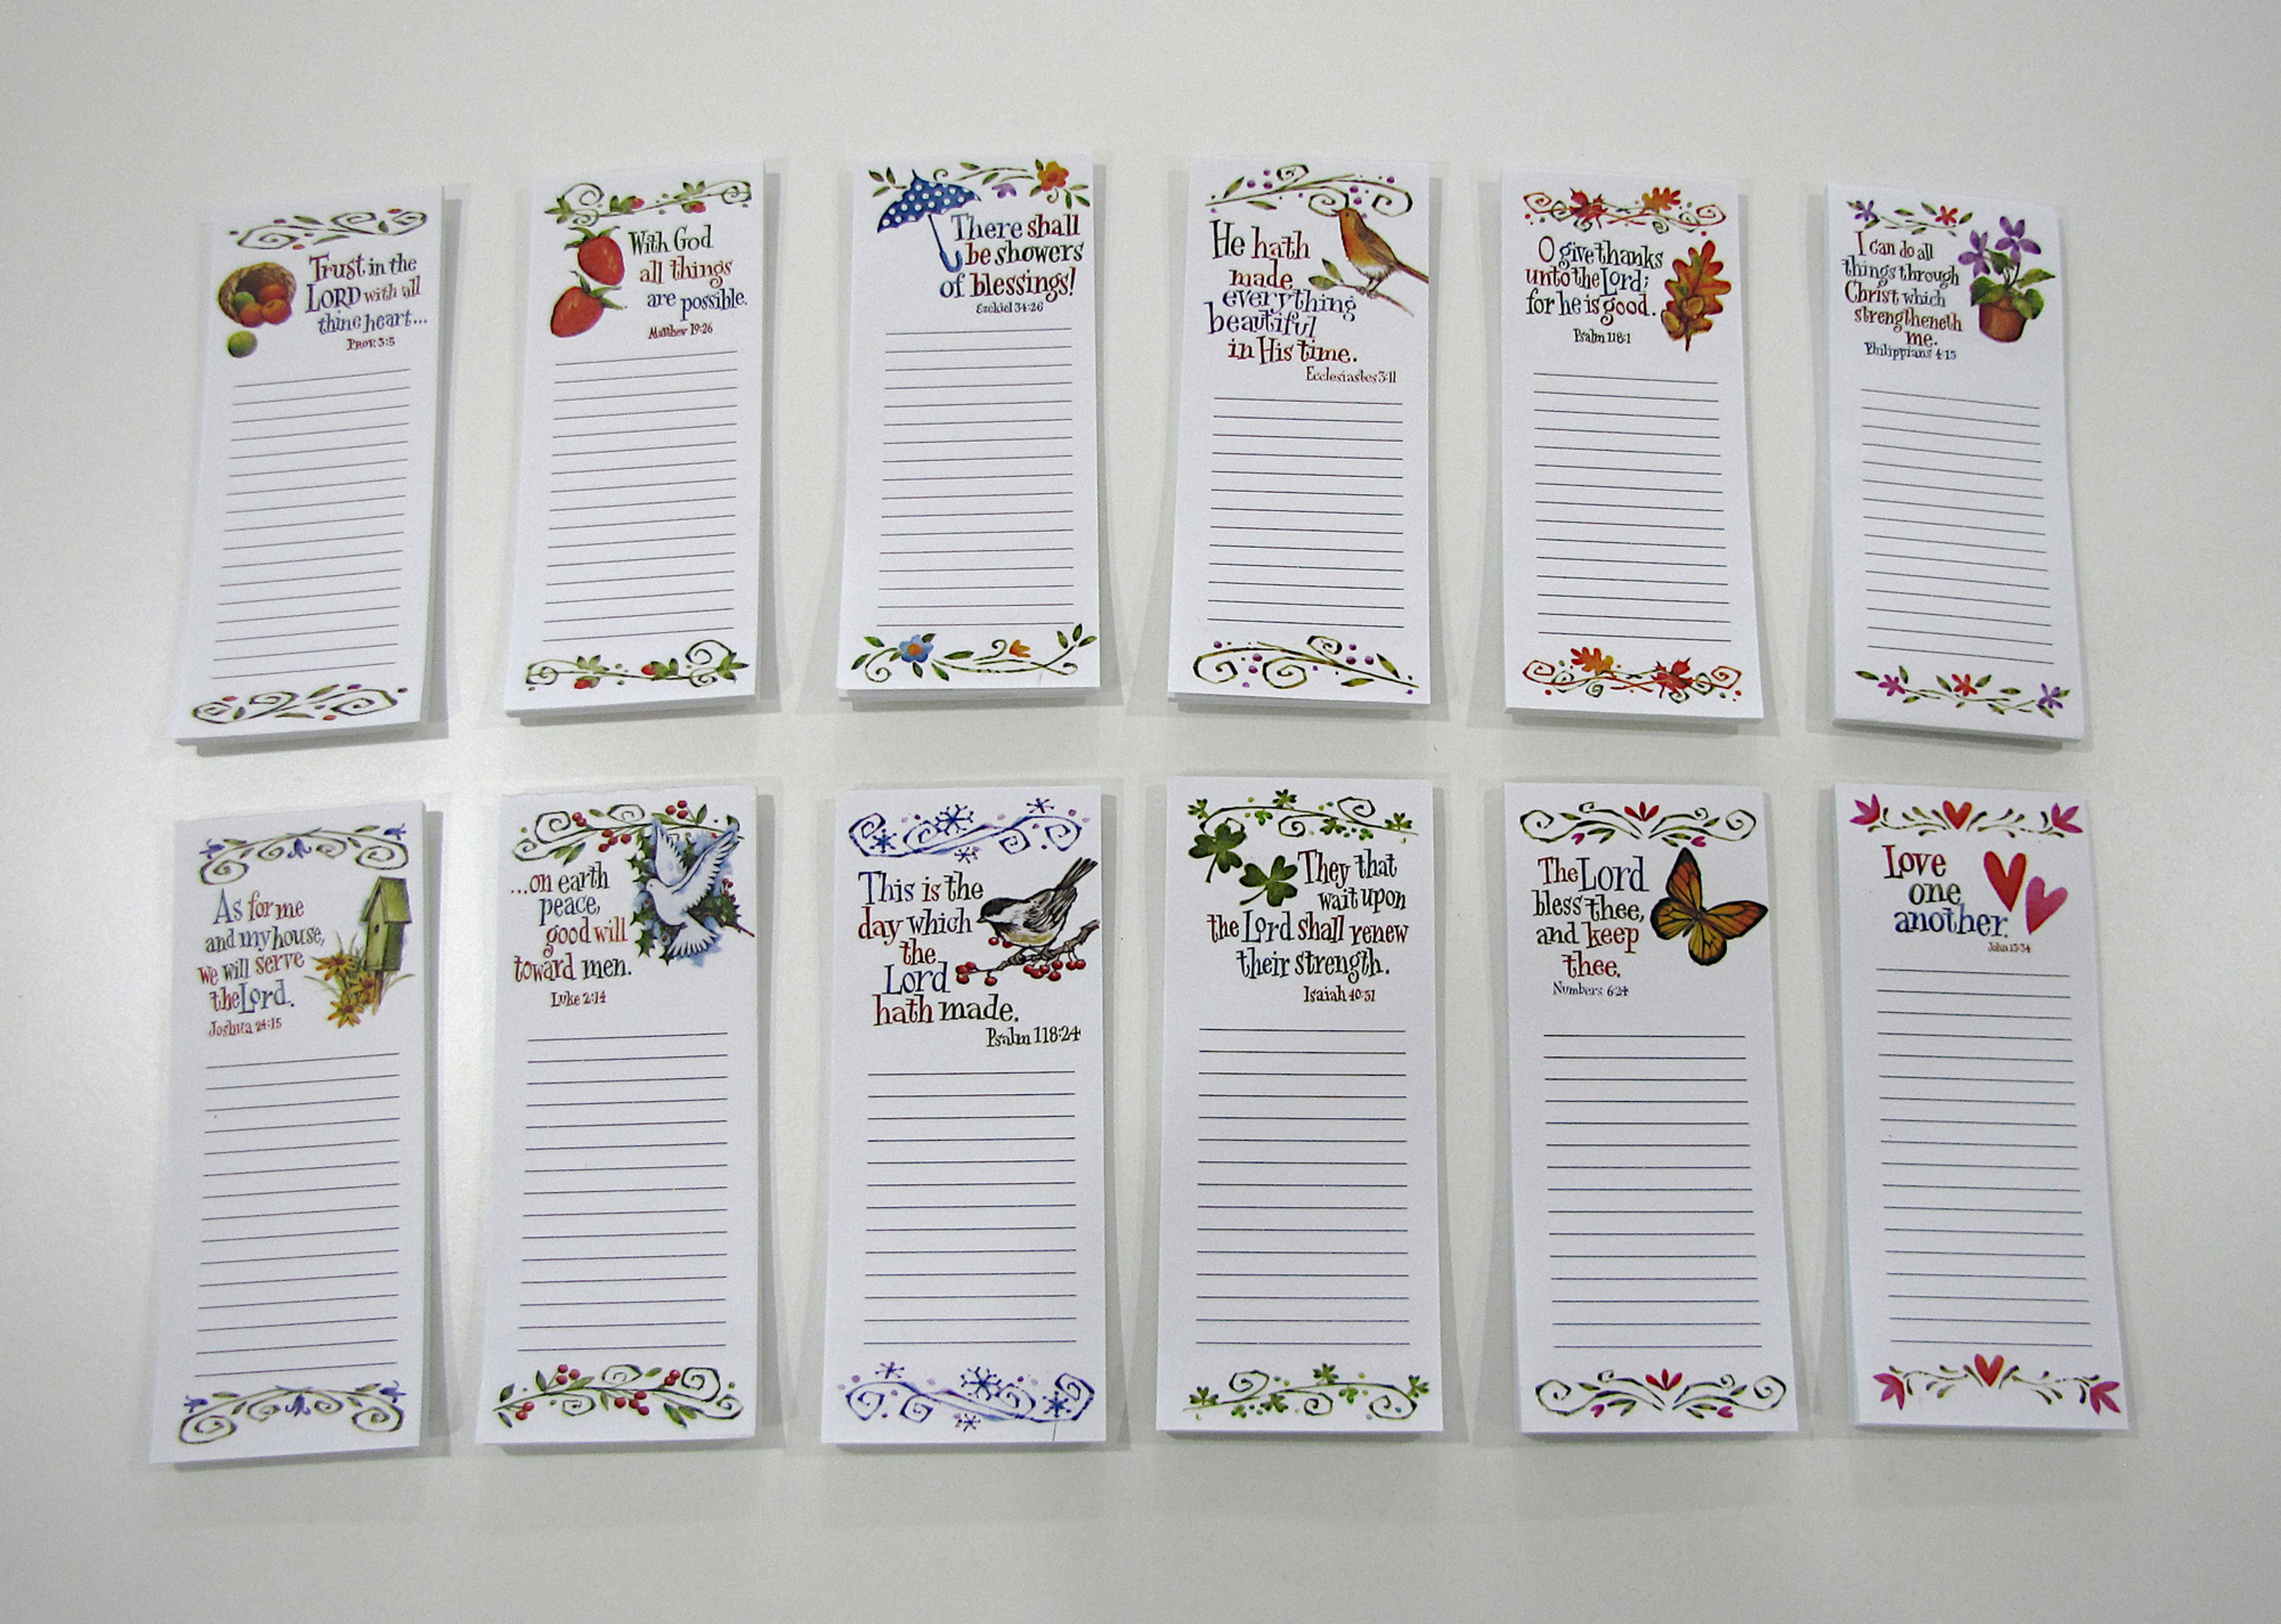 Trust in the
LORD with all
thine heart...
Prov. 3:5
With God
all things
are possible.
Matthew 19:26
There shall
be showers
of blessings!
Ezekiel 34:26
He hath
made
everything
beautiful
in His time.
Ecclesiastes 3:11
O give thanks
unto the Lord;
for he is good.
Psalm 118:1
I can do all
things through
Christ which
strengtheneth
me.
Philippians 4:13
As for me
and my house,
we will serve
the Lord.
Joshua 24:15
...on earth
peace,
good will
toward men.
Luke 2:14
This is the
day which
the
Lord
hath made.
Psalm 118:24
They that
wait upon
the Lord shall renew
their strength.
Isaiah 40:31
The Lord
bless thee,
and keep
thee.
Numbers 6:24
Love
one
another.
John 13:34